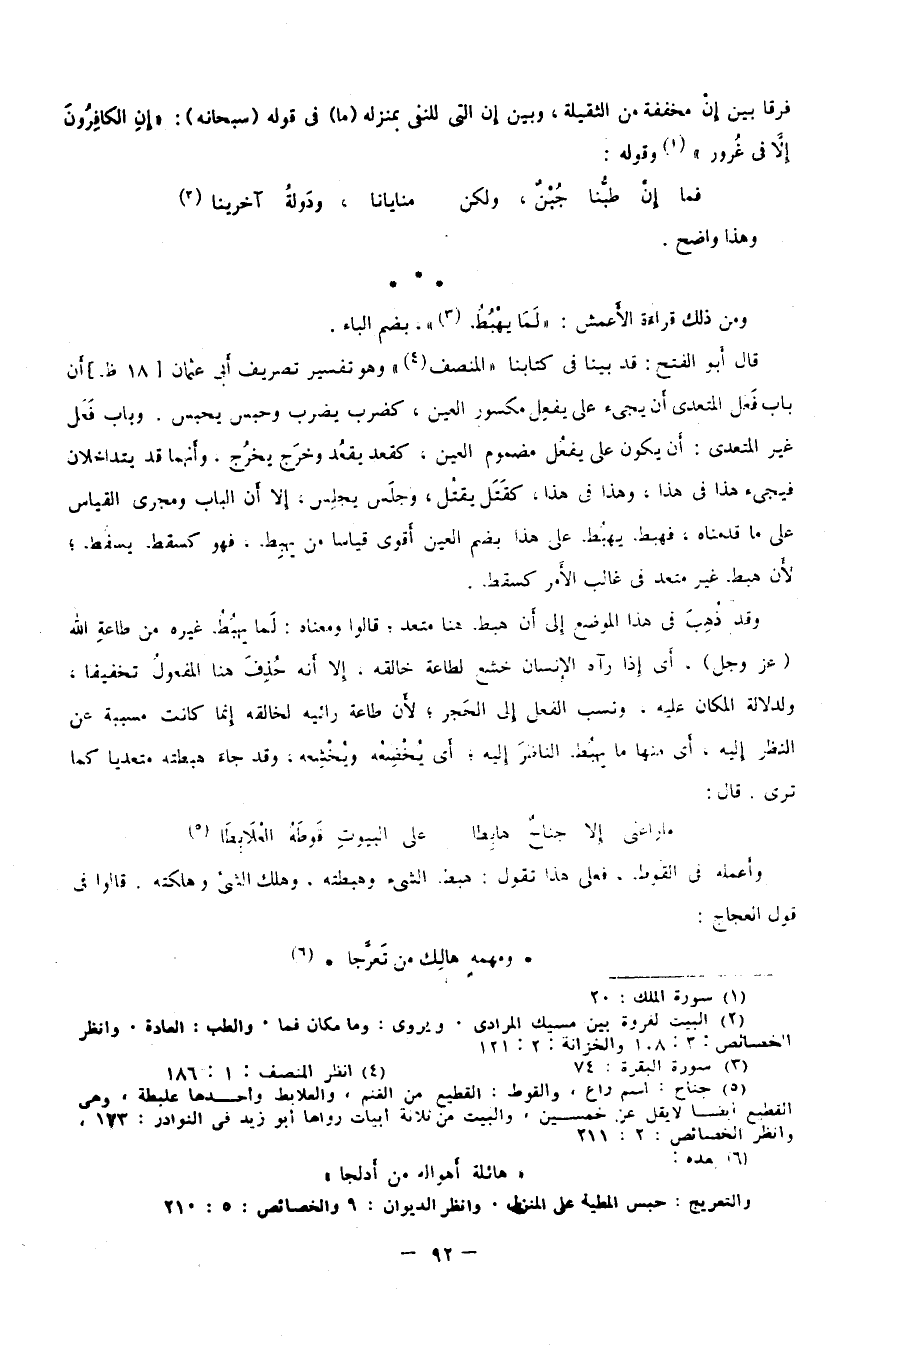 فرقا بين إنْ مخففة من الثقيلة ، وبين إن التى للنفى بمنزله (ما) فى قوله (سبحانه) : «إنِ الكافِرُونَ
إلَّا فى غُرور » (١) وقوله :
فما إنْ طبُّنا جُبْنٌ ، ولكن منايانا ، ودَولةُ آخرينا (٢)
وهذا واضح .
* * *
ومن ذلك قراءة الأَعمش : «لَمَا يهْبُطُ (٣)» . بضم الباء .
قال أَبو الفتح : قد بينا فى كتابنا «المنصف(٤)» وهو تفسير تصريف أَبى عثمان [ ١٨ ظ ] أَن
باب فَعَل المتعدى أَن يجىء على يفعِل مكسور العين ، كضرب يضرب وحبس يحبس . وباب فَعَل
غير المتعدى : أَن يكون على يفعُل مضموم العين ، كقعد يقعُد وخرَج يخرُج . وأَنهما قد يتداخلان
فيجىء هذا فى هذا ، وهذا فى هذا ، كقَتَل يقتُل ، وجلَس يجلِس ، إلا أَن الباب ومجرى القياس
على ما قدمناه ، فهبط يهبُط على هذا بضم العين أَقوى قياسا من يهبِط ، فهو كسقط يسقُط ؛
لأَن هبط غير متعد فى غالب الأَمر كسقط .
وقد ذُهِبَ فى هذا الموضع إلى أَن هبط هنا متعد ؛ قالوا ومعناه : لَما يهبُطُ غيره من طاعةِ الله
( عز وجل ) . أَى إذا رآه الإنسان خشع لطاعة خالقه ، إلا أَنه حُذِفَ هنا المفعولُ تخفيفا ،
ولدلالة المكان عليه . ونسب الفعل إلى الحَجر ؛ لأَن طاعة رائيه لخالقه إنما كانت مسببة عن
النظر إليه ، أَى منها ما يهبُط الناظرَ إليه ؛ أَى يُخْضِعُه ويُخْشِعه ، وقد جاءَ هبطته متعديا كما
ترى . قال :
ماراعنى إلا جناحٌ هابِطا على البيوتِ قَوطَهُ العُلَابِطَا (٥)
وأَعمله فى القوط . فعلى هذا نقول : هبط الشىء وهبطته ، وهلك الشىء وهلكته . قالوا فى
قول العجاج :
* ومهمهٍ هالِك من تَعرَّجا * (٦)
(١) سورة الملك : ٢٠
(٢) البيت لفروة بين مسيك المرادى . ويروى : وما مكان فما . والطب : العادة . وانظر
الخصائص : ٣ : ١٠٨ والخزانة : ٢ : ١٢١
(٣) سورة البقرة : ٧٤ (٤) انظر المنصف : ١ : ١٨٦
(٥) جناح : اسم راع ، والقوط : القطيع من الغنم ، والعلابط واحدها علبطة ، وهى
القطيع أيضا لايقل عن خمسين ، والبيت من ثلاثة أبيات رواها أبو زيد فى النوادر : ١٧٣ ،
وانظر الخصائص : ٢ : ٢١١
(٦) بعده :
« هائلة أهواله من أدلجا »
والتعريج : حبس المطية على المنزل . وانظر الديوان : ٩ والخصائص : ٥ : ٢١٠
— ٩٢ —